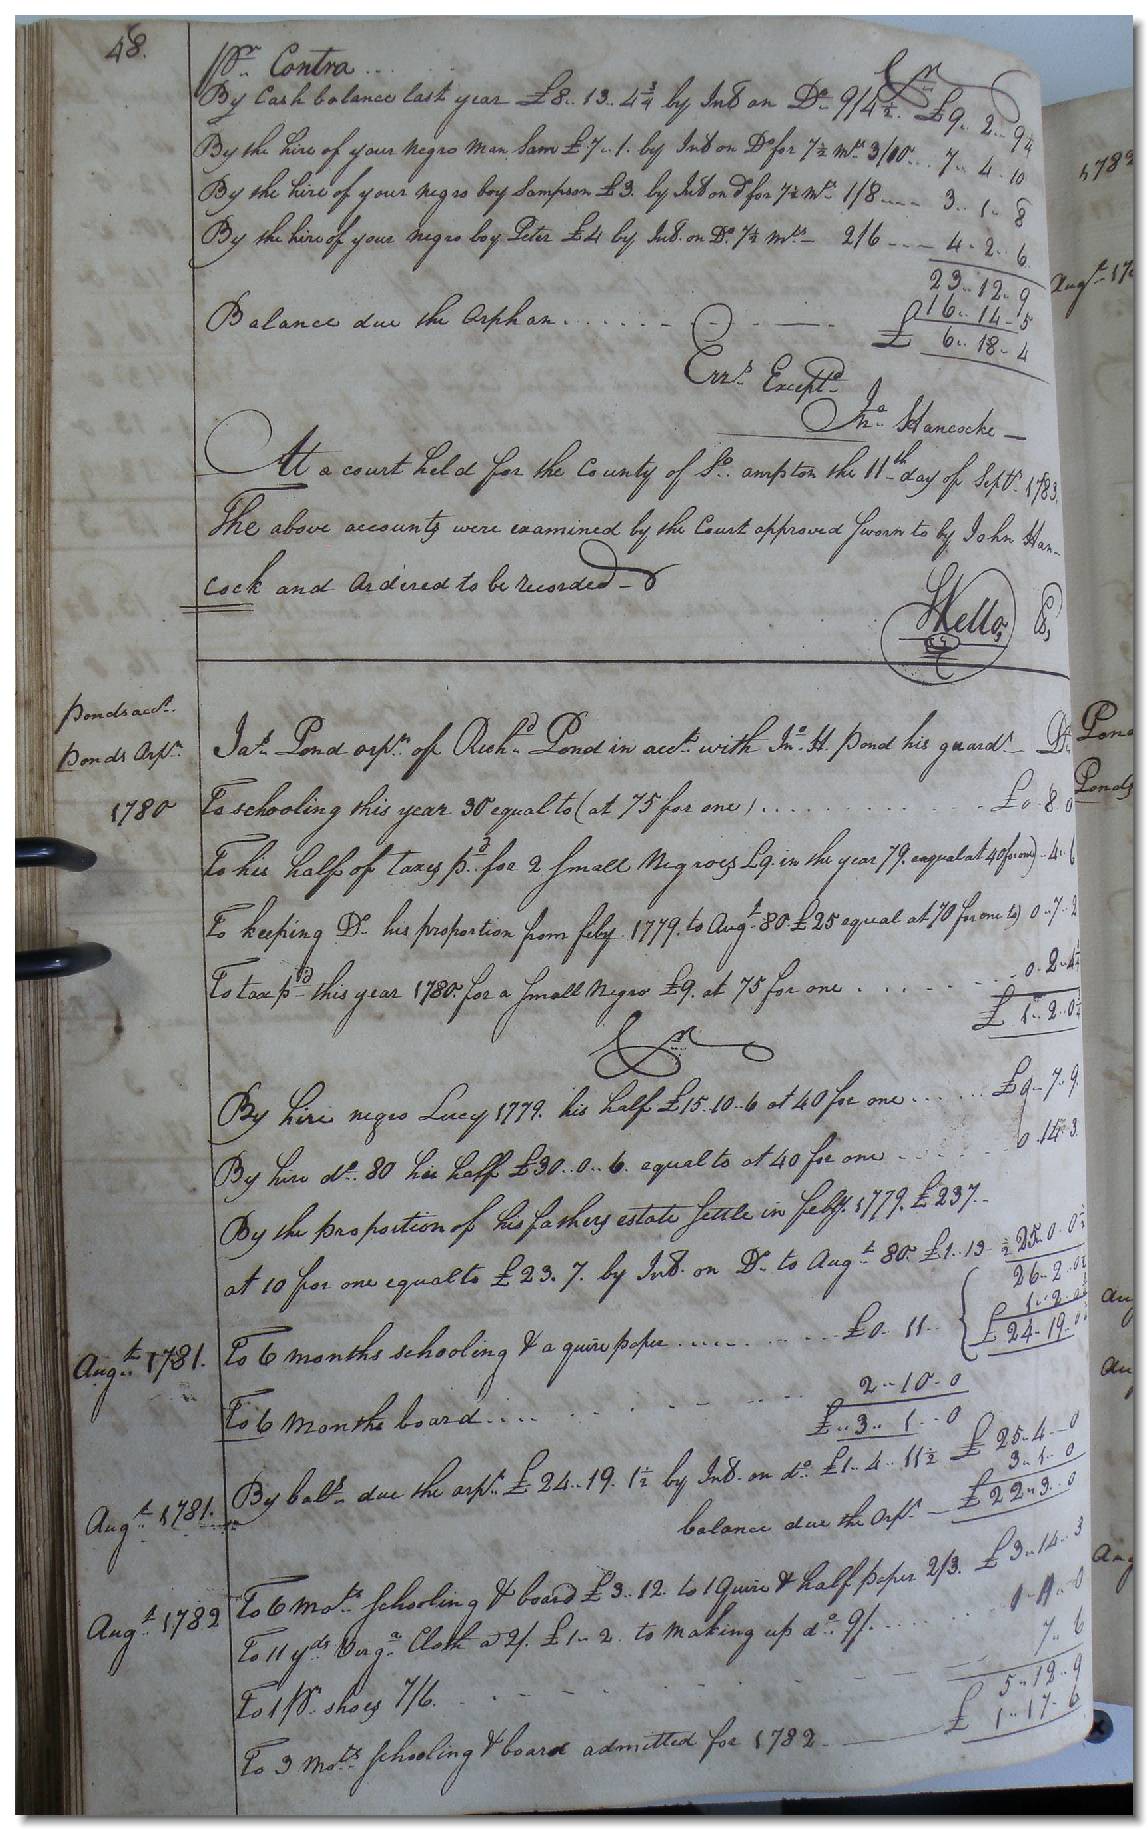 48.
Pr. Contra ... Cr
By Cash balance last year £8..13..4¾ by Int on Do 9/4½. £9..2..9¼
By the hire of your Negro Man Sam £7..1. by Int on Do for 7½ mts 3/10... 7..4..10
By the hire of your Negro boy Sampson £3. by Int on do for 7½ mts 1/8.... 3..1..8
By the hire of your Negro boy Peter £4 by Int. on Do. 7½ mts - 2/6 --- 4..2..6
23..12..9
16..14..5
Balance due the Orphan....... £ 6..18..4
Errs. Exceptd
Jno. Hancocke
At a court held for the County of So.ampton the 11th day of Septr. 1783.
The above accounts were examined by the Court approved sworn to by John Han-
cock and Ordired to be recorded
Pondsacct.
Ponds Orpn.
Jas. Pond orpn. of Richd. Pond in acct. with Jno. H. Pond his guardn. Dr.
1780 To schooling this year 30 equal to (at 75 for one) ........ £0..8..0
To his half of taxes pd. for 2 small Negroes £9. in the year 79. eaqual at 40 for one) - 4..6
To keeping Do. his proportion from feby. 1779. to Augt. 80. £25 equal at 70 for one to) 0..7..2
To tax pd. this year 1780. for a small Negro £9. at 75 for one ....... 0..2..4½
£ 1..2..0½
Cr
By hire negro Lucy 1779. his half £15..10..6 at 40 for one ...... £0..7..9
By hire do. 80 his half £30..0..6. equal to at 40 for one ....... 0..14..3.
By the proportion of his fathers estate settle in feby. 1779. £237-
at 10 for one equal to £23.7. by Int. on Do. to Augt. 80. £1..13 ½ 25..0..0½
26..2..0½
1..2..0½
Augt. 1781. To 6 months schooling & a quire paper ......... £0..11.. £24..19..
To 6 Months board.... 2..10..0
£..3..1..0
Augt. 1781. By bale. due the orpn. £24..19..1½ by Int. on do. £1..4..11½ £25..4..0
3..1..0
balance due the Orpn. - £22..3..0
Augt. 1782 To 6 Mots. schooling & board £3..12. to 1 Quire & half paper 2/3. £3..14..3
To 11 yds Virga. Cloth a 2/. £1..2. to Making up do. 9/......... 1..11..0
To 1 Pr. shoes 7/6. 7..6
5..12..9
To 3 Mots. schooling & board admitted for 1782 £ 1..17..6
1782
Pond
Ponds